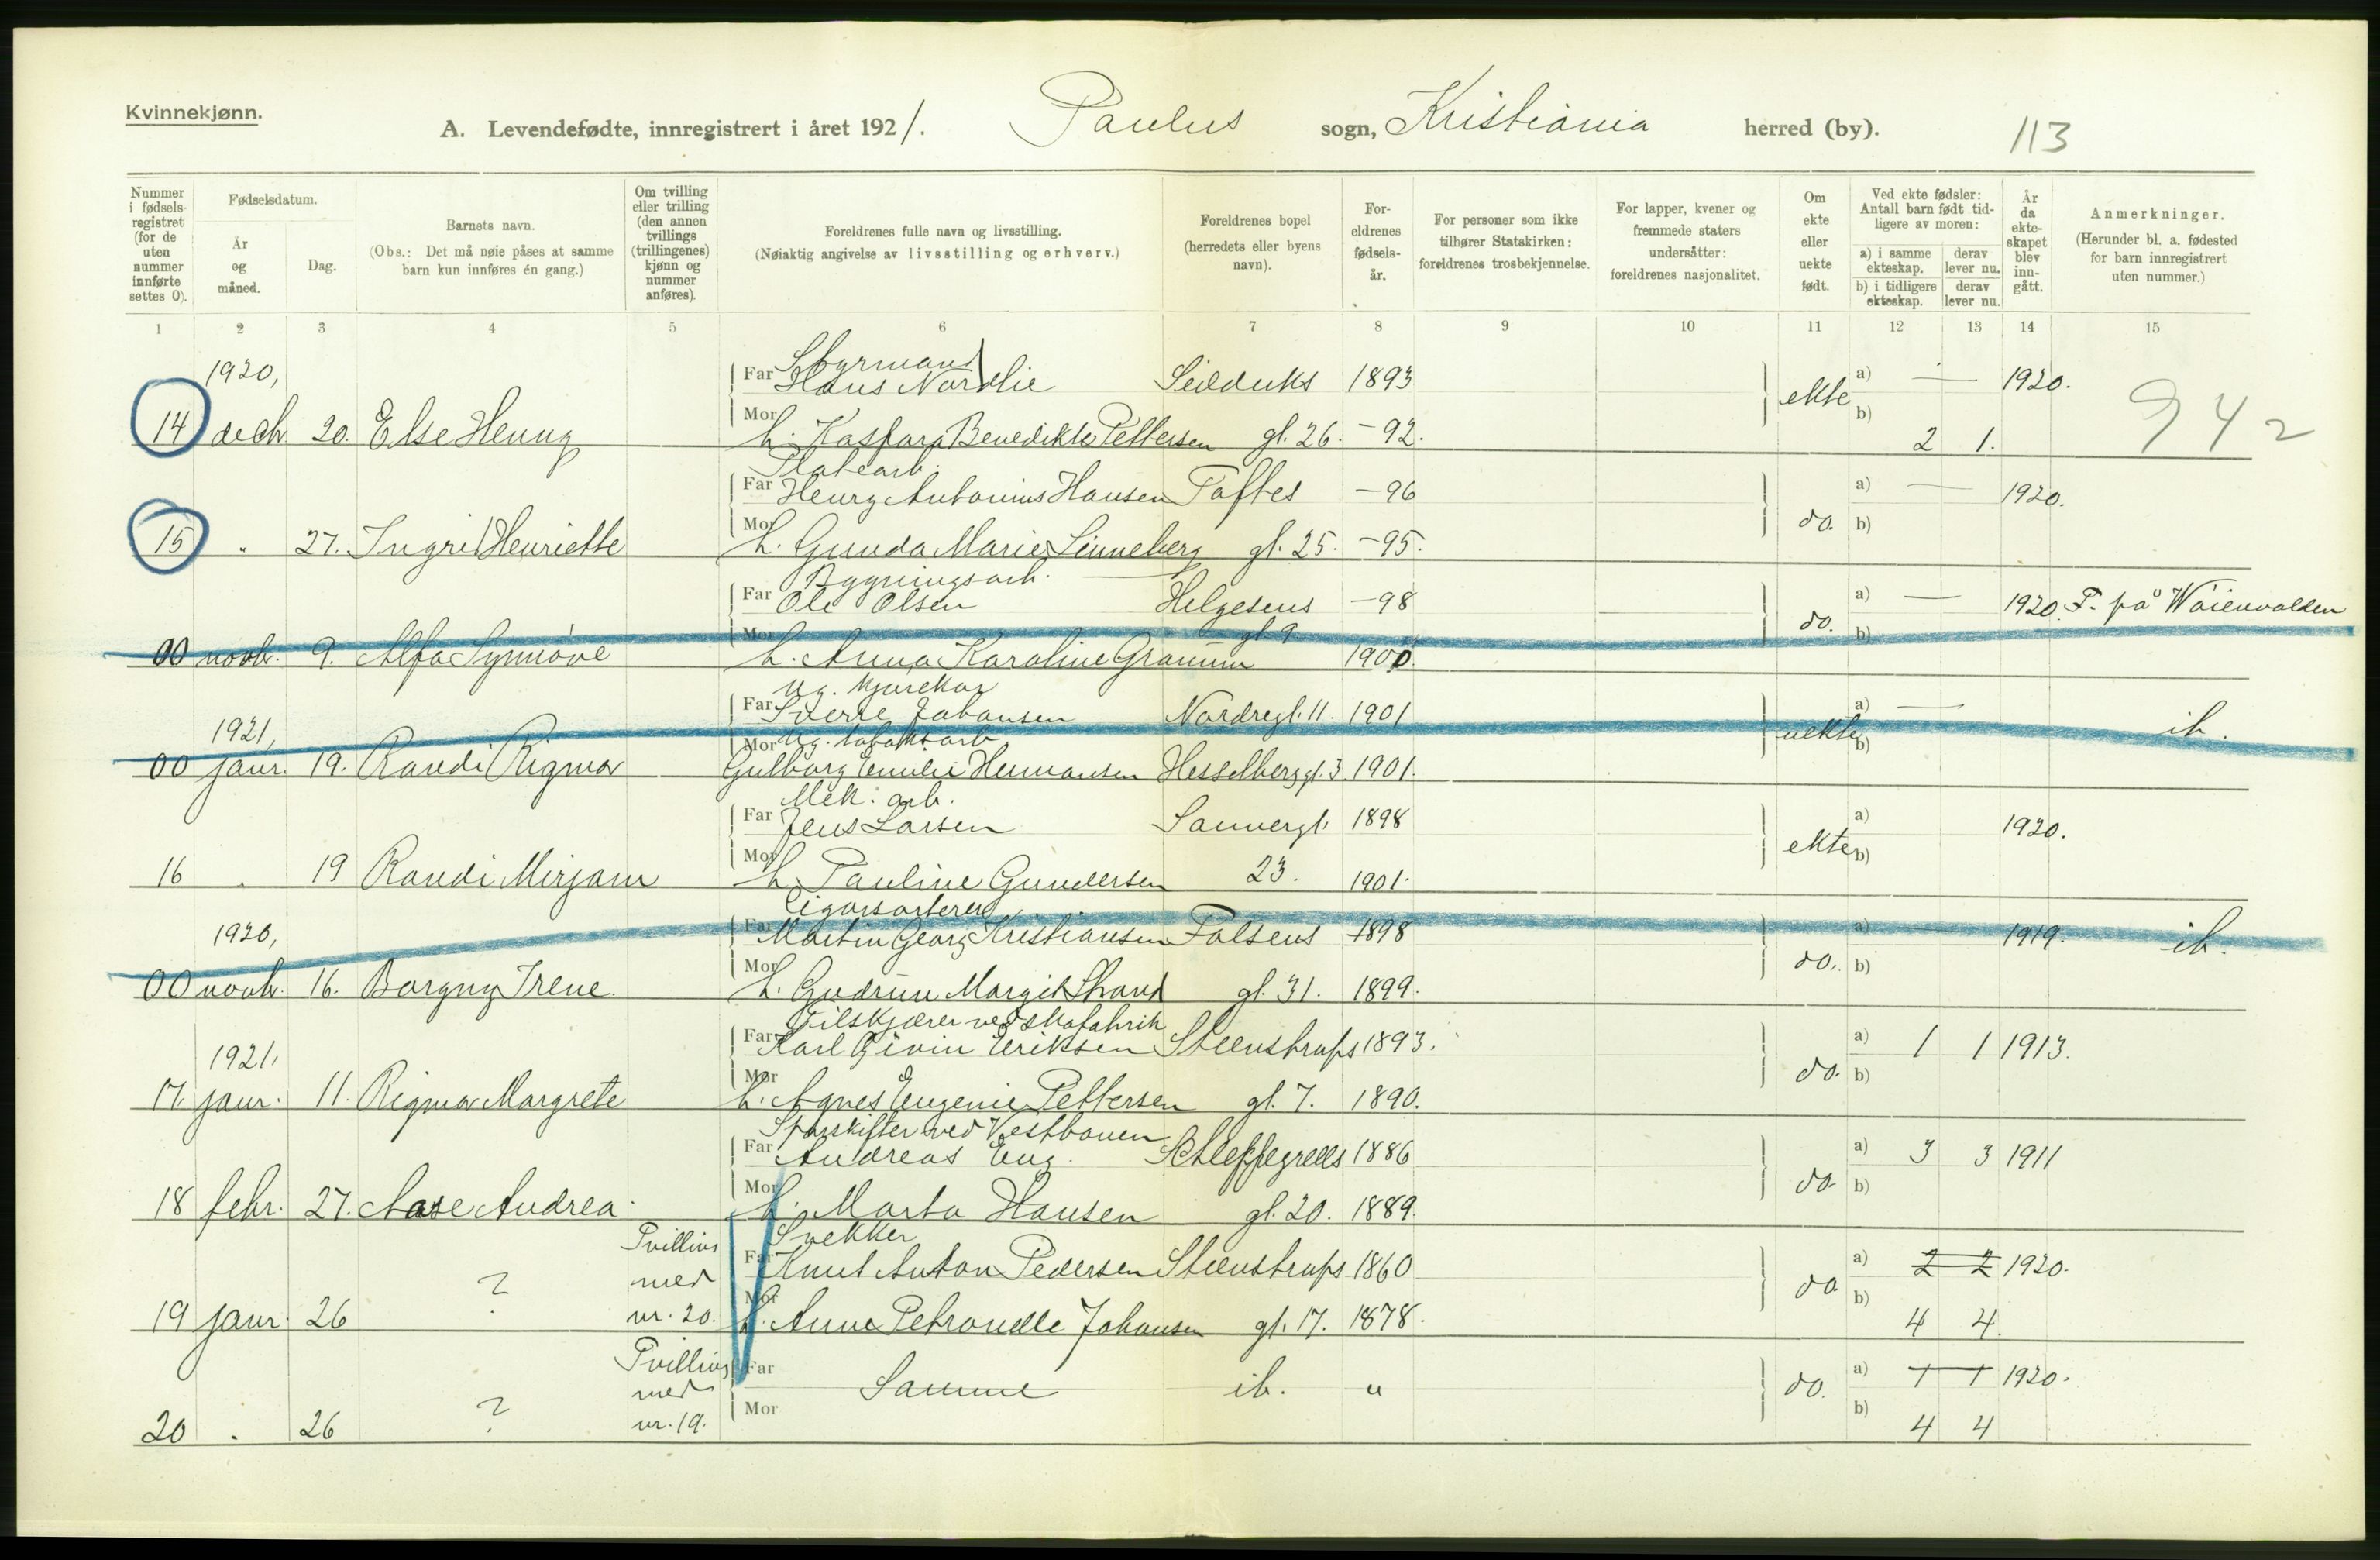 Kvinnekjønn.
A. Levendefødte, innregistrert i året 1921. Paulus sogn, Kristiania herred (by). 113
Nummer i fødselsregistret (for de uten nummer innførte settes 0).
Fødselsdatum.
År og måned.
Dag.
Barnets navn.
(Obs.: Det må nøie påses at samme barn kun innføres én gang.)
Om tvilling eller trilling (den annen tvillings (trillingenes) kjønn og nummer anføres).
Foreldrenes fulle navn og livsstilling.
(Nøiaktig angivelse av livsstilling og erhverv.)
Foreldrenes bopel (herredets eller byens navn).
Foreldrenes fødselsår.
For personer som ikke tilhører Statskirken: foreldrenes trosbekjennelse.
For lapper, kvener og fremmede staters undersåtter: foreldrenes nasjonalitet.
Om ekte eller uekte født.
Ved ekte fødsler: Antall barn født tidligere av moren:
a) i samme ekteskap. derav lever nu.
b) i tidligere ekteskap. derav lever nu.
År da ekteskapet blev inngått.
Anmerkninger.
(Herunder bl. a. fødested for barn innregistrert uten nummer.)
1 2 3 4 5 6 7 8 9 10 11 12 13 14 15
1920, Styrmand
Far Hans Nordlie Seilduks 1893 ekte a) — 1920. 942
14 decb. 20. Else Henny Mor h. Kaspara Benedikte Pettersen gl. 26. -92. b) 2 1.
Platearb.
Far Henry Antonius Hansen Toftes -96 do. a) — 1920.
15 " 27. Ingrid Henriette Mor h. Gunda Marie Linneberg gl. 25. -95. b)
Bygningsarb.
Far Ole Olsen Helgesens -98 do. a) — 1920. F. på Wøienvolden
00 novb. 9. Alfa Synnøve Mor h. Anna Karoline Granum gl. 9 1900. b)
Ug. kjørekar
Far Sverre Johansen Nordregt. 11. 1901 uekte a) — ib.
1921, Mor Ug. tobaksarb.
00 janr. 19. Randi Rigmor Gulborg Emilie Hermansen Hesselbergsgt. 3 1901. b)
Mek. arb.
Far Jens Larsen Sannergt. 1898 ekte a) 1920.
16 " 19 Randi Mirjam Mor h. Pauline Gundersen 23. 1901. b)
Cigarsorterer
1920, Far Martin Georg Kristiansen Falsens 1898 do. a) — 1919. ib.
00 novb. 16. Borgny Irene Mor h. Gudrun Margit Strand gl. 31. 1899. b)
Tilskjærer ved skofabrik
1921, Far Karl Eriksen Steenstrups 1893. do. a) 1 1 1913.
17. janr. 11. Rigmor Margrete Mor h. Agnes Eugenie Pettersen gl. 7. 1890. b)
Sporskifter ved Vestbanen
Far Andreas Eng. Schleppegrells 1886 do. a) 3 3 1911
18 febr. 27. Aase Andrea Mor h. Marta Hansen gl. 20. 1889. b)
Tvilling med nr. 20. Snekker
Far Knut Anton Pedersen Steenstrups 1860 do. a) 2 2 1920.
19 janr. 26 ? Mor h. Anne Petronelle Johansen gl. 17. 1878. b) 4 4.
Tvilling med nr. 19. Far Samme ib. " do. a) 1920.
20 " 26 ? Mor b) 4 4